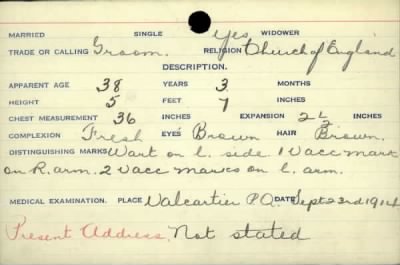 MARRIED SINGLE Yes WIDOWER
TRADE OR CALLING Groom. RELIGION Church of England
DESCRIPTION.
APPARENT AGE 38 YEARS 3 MONTHS
HEIGHT 5 FEET 7 INCHES
CHEST MEASUREMENT 36 INCHES EXPANSION 2 1/2 INCHES
COMPLEXION Fresh EYES Brown HAIR Brown.
DISTINGUISHING MARKS Wart on L. side 1 Vacc mark
on R. arm. 2 Vacc marks on L. arm.
MEDICAL EXAMINATION. PLACE Valcartier P.Q. DATE Sept 23rd 1914
Present Address, Not stated